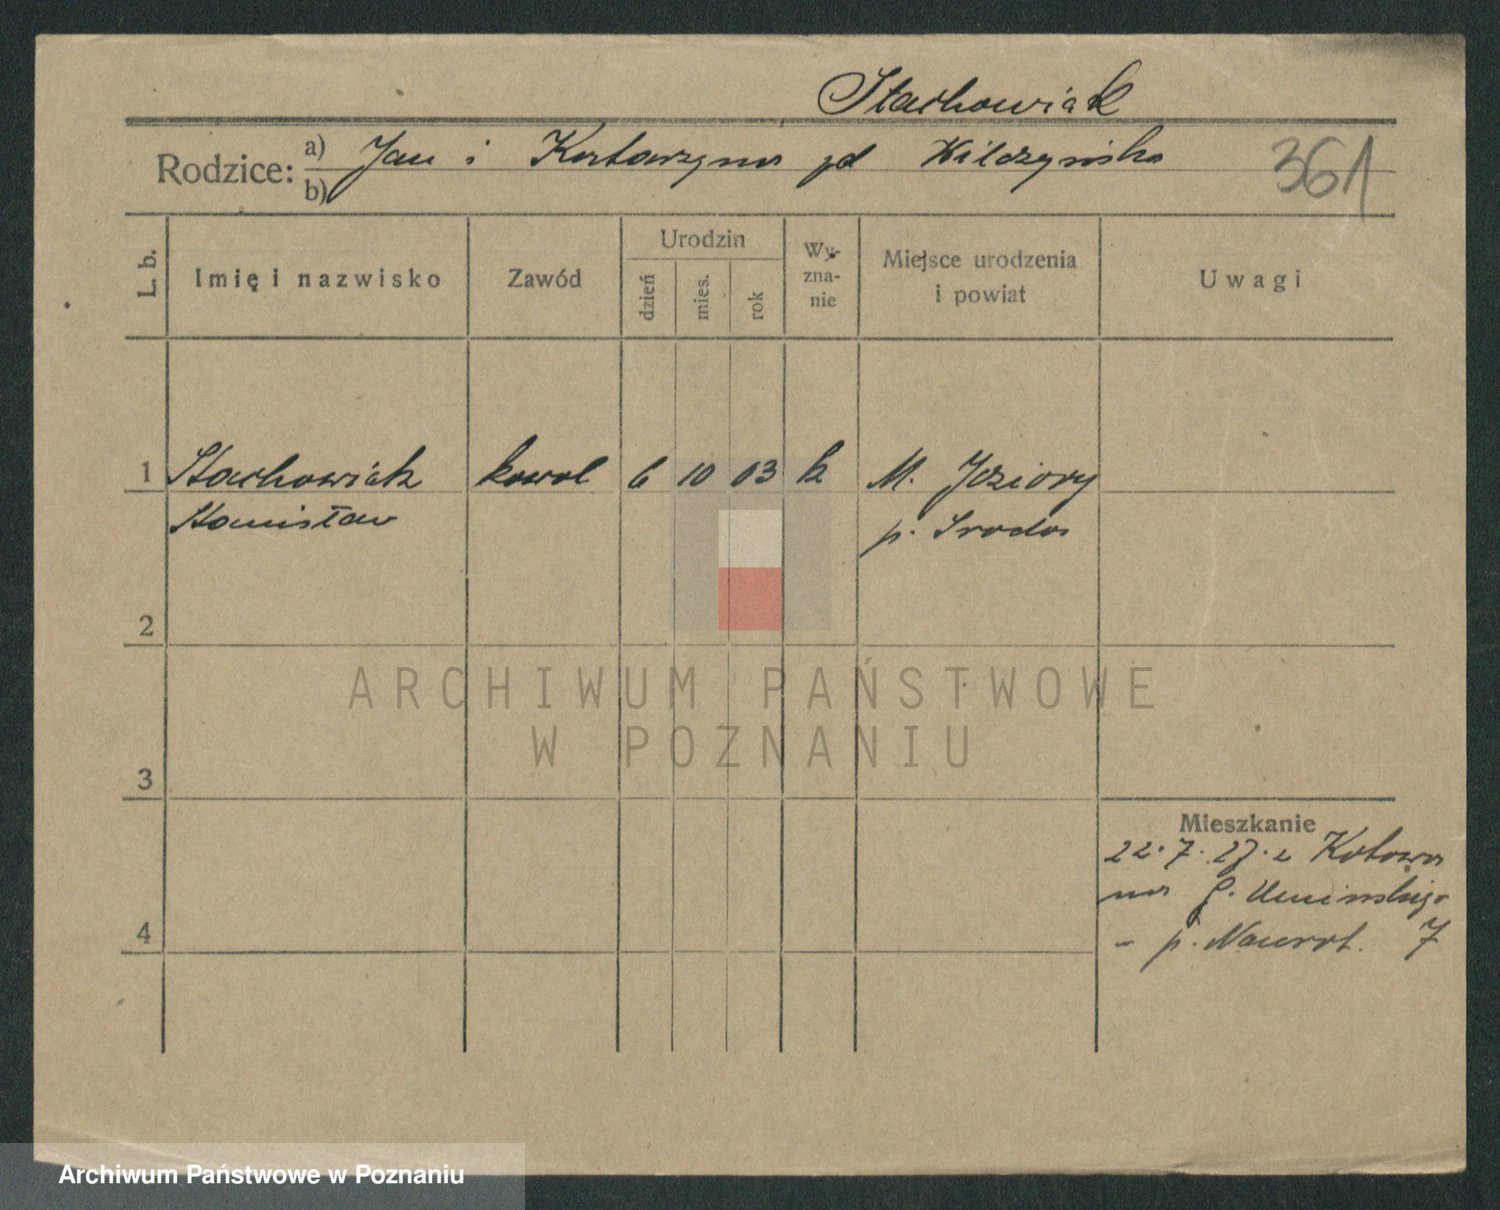 Stachowiak
Rodzice: a) Jan i Katarzyna zd Wilczyńska
b)
361
L. b. Imię i nazwisko Zawód Urodzin dzień mies. rok Wy-zna-nie Miejsce urodzenia i powiat Uwagi
1 Stachowiak kowal 6 10 03 k M. Jeziory
Stanisław p. Sroda
2
3
Mieszkanie
22.7.27. z Kotowa
na G. Umińskiego
4 - p. Nawrot. 7
ARCHIWUM PAŃSTWOWE
W POZNANIU
Archiwum Państwowe w Poznaniu